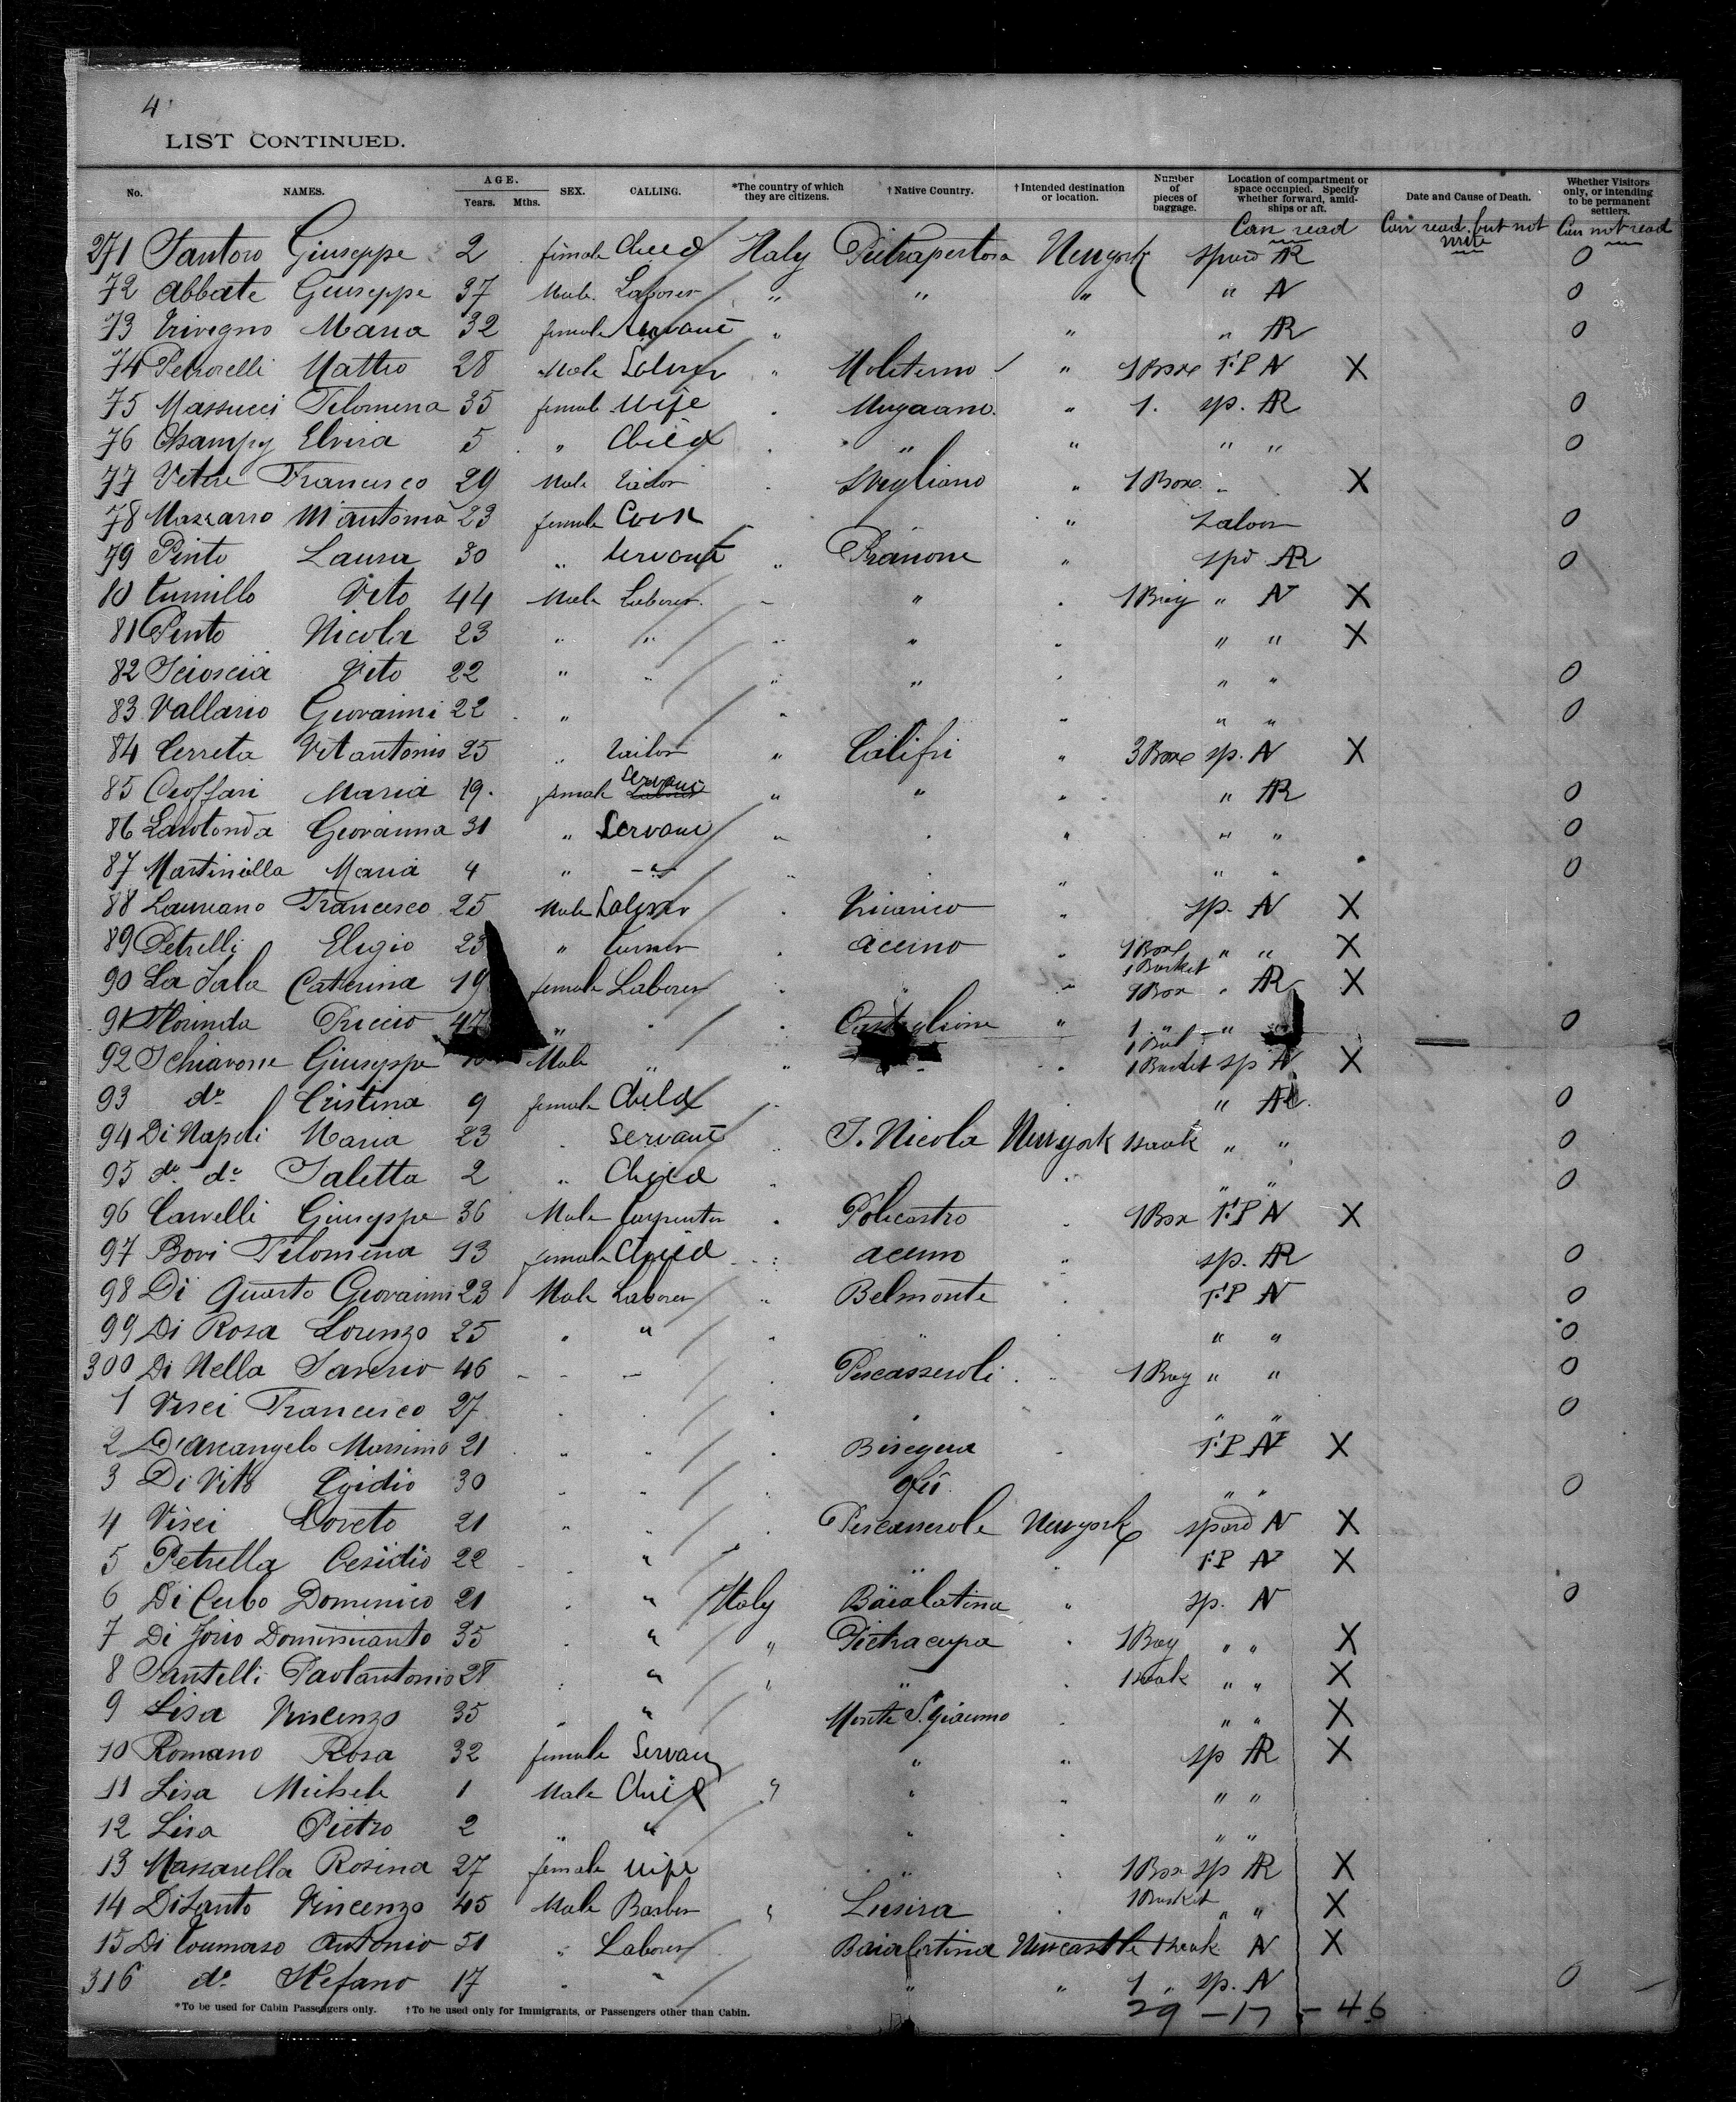 4
LIST CONTINUED.
No. NAMES. AGE. Years. Mths. SEX. CALLING. *The country of which they are citizens. †Native Country. †Intended destination or location. Number of pieces of baggage. Location of compartment or space occupied. Specify whether forward, amidships or aft. Date and Cause of Death. Whether Visitors only, or intending to be permanent settlers.
Can read Can read but not write Can not read
271 Santoro Giuseppe 2 female Child Italy Pietrapertosa Newyork AR 0
72 Abbate Giuseppe 37 Male Laborer " " " " N 0
73 Trivegno Maria 32 female Servant " " " AR 0
74 Petrorelli Matteo 28 Male Laborer " Moliterno " 1 Box F.P N X
75 Massucci Filomena 35 female Wife " 1. sp. AR 0
76 Elvira 5 " Child " " " " 0
77 Vetere Francesco 29 Male Tailor " 1 Box " X
78 Mazzarro M antonia 23 female Cook " 0
79 Pinto Laura 30 " Servant " " AR 0
80 Tumillo Vito 44 Male Laborer " " 1 Bag " N X
81 Pinto Nicola 23 " " " " " " X
82 Scioscia Vito 22 " " " " " " 0
83 Vallario Giovanni 22 " " " " 0
84 Cerreta Vitantonio 25 " Tailor " Calitri " 3 Box sp. N X
85 Cioffari Maria 19. female Servant " " " " AR 0
86 Larotonda Giovanna 31 " Servant " " " " 0
87 Martiniella Maria 4 " " " " " 0
88 Laureano Francesco 25 Male Laborer " " sp. N X
89 Petrelli Eligio 23 " " Acerno " 1 Box " " X
90 La Sala Caterina 19 female Laborer " " 1 Basket 1 Box " AR X
91 Florinda Riccio 47 " " " Castiglione " 1 " " 0
92 Schiavone Giuseppe Male " " " 1 Basket sp N X
93 do Cristina 9 female Child " " AR 0
94 Di Napoli Maria 23 " Servant " S. Nicola Newyork 1 sack " " 0
95 do do Saletta 2 " Child " " " 0
96 Carvelli Giuseppe 36 Male Carpenter " Policastro " 1 Box F.P N X
97 Bovi Filomena 13 female Child " Acerno " sp. AR 0
98 Di Quarto Giovanni 23 Male Laborer " Belmonte " F.P N 0
99 Di Rosa Lorenzo 25 " " " " " " 0
300 Di Nella Saverio 46 " " Pescasseroli " 1 Bag " " 0
1 Visci Francesco 27 " " " " " " 0
2 D'Arcangelo Massimo 21 " " " Bisegna " F.P N X
3 Di Vito Egidio 30 " " " " " 0
4 Visci Loreto 21 " " " Pescasserole Newyork N X
5 Petrella Cesidio 22 " " " " F.P N X
6 Di Cubo Dominico 21 " " Italy Baialatina " sp. N 0
7 Di Jorio 35 " " " Pietracupa " 1 Bag " " X
8 Santelli Paolantonio 28 " " " " " 1 sack " " X
9 Lisa Vincenzo 35 " " Monte S. Giacomo " " " X
10 Romano Rosa 32 female Servant " " sp AR X
11 Lisa Michele 1 Male Child " " " " "
12 Lisa Pietro 2 " " " " " "
13 Massarella Rosina 27 female Wife " " 1 Box sp AR X
14 Di Santo Vincenzo 45 Male Barber " " 1 Basket " " X
15 Di Toumaso Antonio 51 " Laborer Baialatina Newcastle 1 sack N X
316 do Stefano 17 " " " " 1 " sp. N 0
29 – 17 – 46
*To be used for Cabin Passengers only. †To be used only for Immigrants, or Passengers other than Cabin.